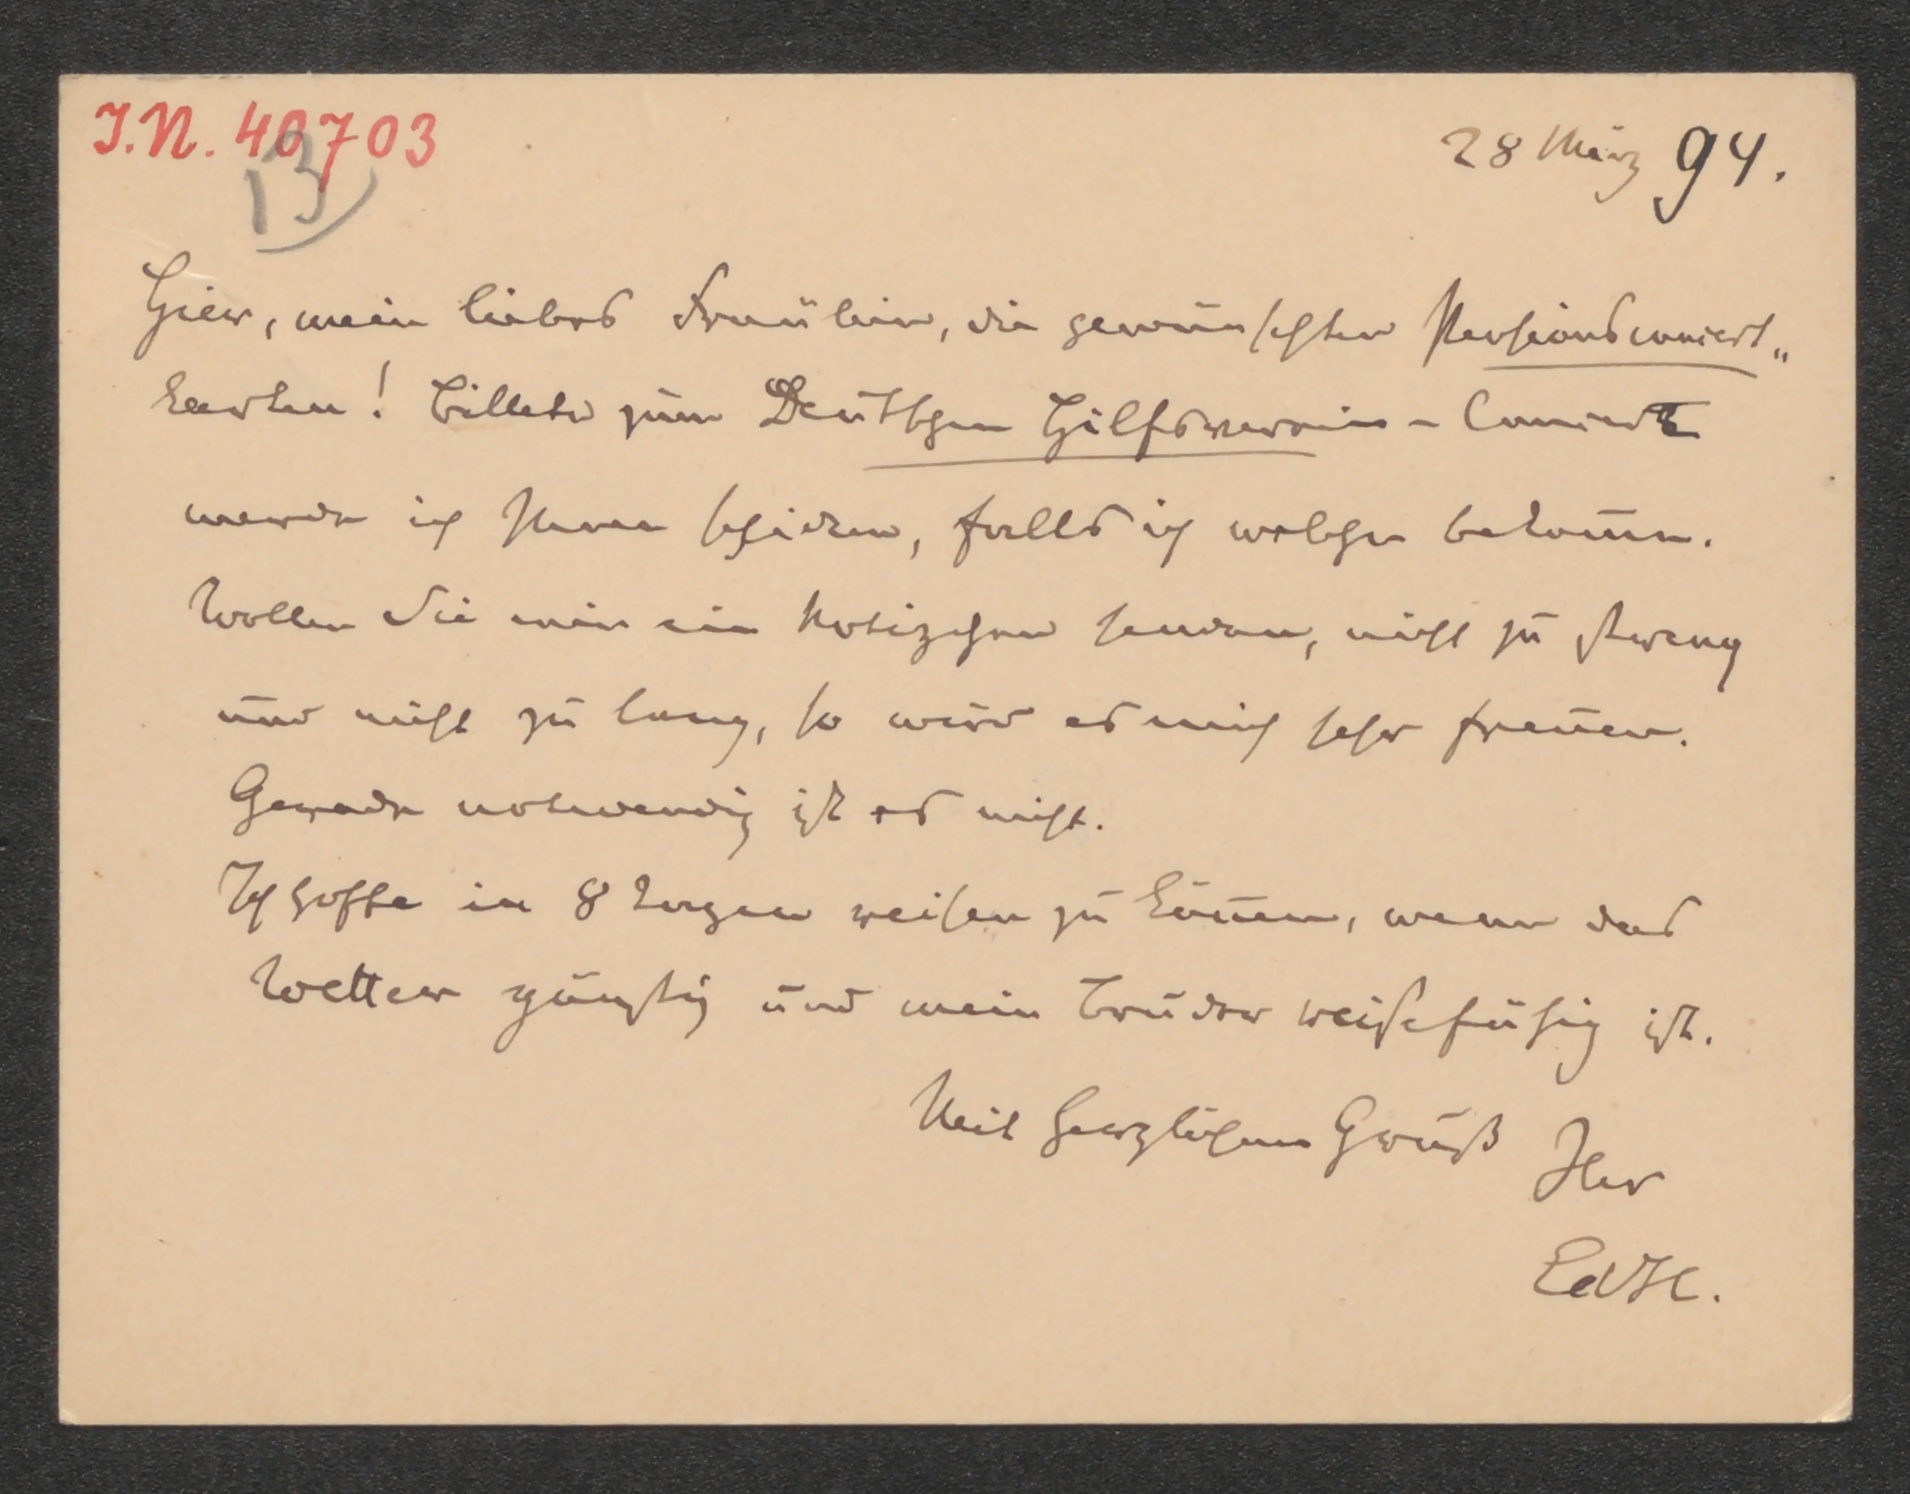 I.N. 40703
13
28 März 94.
Hier, mein liebes Fräulein, die gewünschten Pensionsconcert„
karten! Billete zum Deutschen Hilfsverein - Concert
werde ich Ihnen schicken, falls ich welche bekom̅e.
Wollen Sie mir ein Notizchen senden, nicht zu streng
und nicht zu lang, so wird es mich sehr freuen.
Gerade notwendig ist es nicht.
Ich hoffe in 8 Tagen reisen zu kön̅en, wenn das
Wetter günstig und mein Bruder reisefähig ist.
Mit herzlichem Gruß Ihr
EdH.